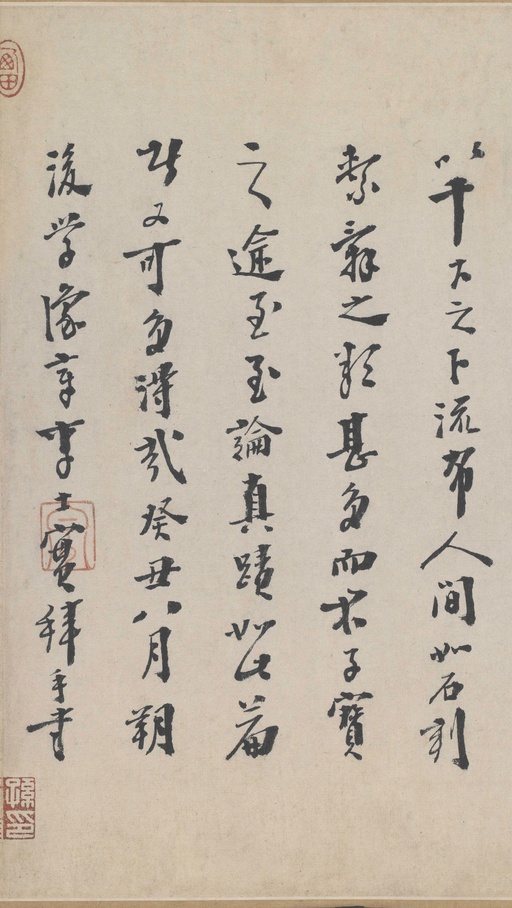 之下流布人間如石刻
繫辭之類甚多而子寶
之逾至至論真蹟如此篇
又可多得哉癸丑八月朔
後學豫章李士實拜手書